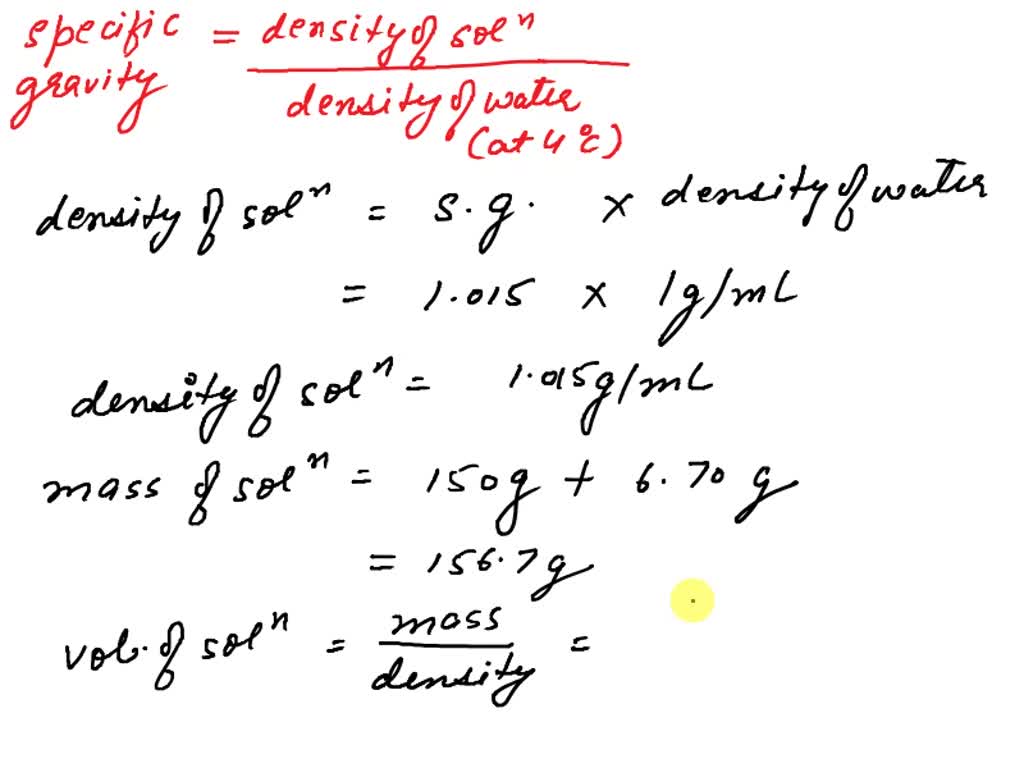 specific gravity = density of solⁿ
density of water
(at 4°C)
density of solⁿ = s.g. × density of water
= 1.015 × 1g/mL
density of solⁿ = 1.015g/mL
mass of solⁿ = 150g + 6.70 g
= 156.7g
vol. of solⁿ = mass
density =